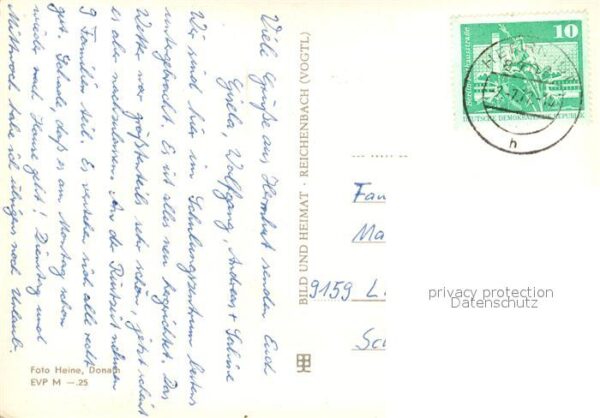 Viele Grüße aus Herrnhut senden Euch
Gisela, Wolfgang, Andreas + Sabine
Wir sind hier im Schulungszentrum bestens
untergebracht. Es ist alles neu hergerichtet. Das
Wetter war größtenteils sehr schön, jetzt scheint
es aber nachzulassen. An der Rüstzeit nehmen
9 Familien teil. Es verstehen sich alle recht
gut. Schade, daß es am Montag schon
wieder nach Hause geht! Dienstag und
Mittwoch habe ich übrigens noch Urlaub.
Foto Heine, Donath
EVP M —.25
BILD UND HEIMAT · REICHENBACH (VOGTL)
10
DEUTSCHE DEMOKRATISCHE REPUBLIK
h
Fam
Ma
9159 L
Sc
privacy protection
Datenschutz